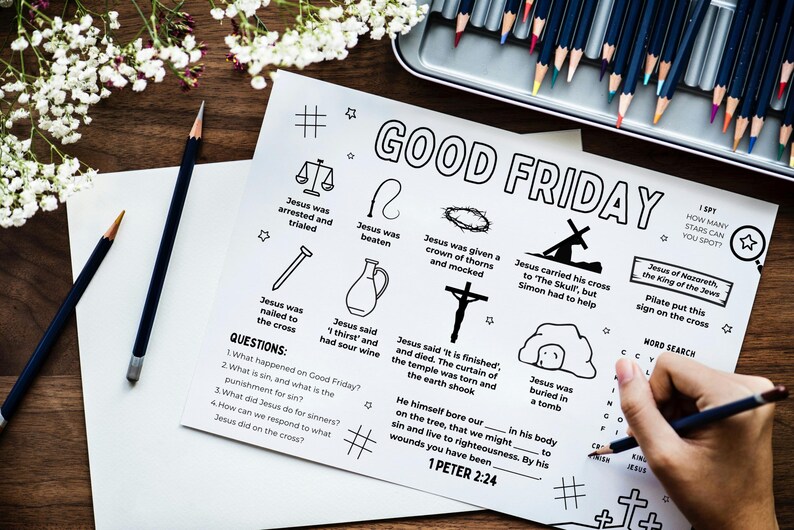 GOOD FRIDAY
I SPY
HOW MANY
STARS CAN
YOU SPOT?
Jesus was
arrested and
trialed
Jesus was
beaten
Jesus was given a
crown of thorns
and mocked
Jesus carried his cross
to 'The Skull', but
Simon had to help
Jesus of Nazareth,
the King of the Jews
Pilate put this
sign on the cross
Jesus was
nailed to
the cross
Jesus said
'I thirst' and
had sour wine
Jesus said 'It is finished',
and died. The curtain of
the temple was torn and
the earth shook
Jesus was
buried in
a tomb
QUESTIONS:
1. What happened on Good Friday?
2. What is sin, and what is the
punishment for sin?
3. What did Jesus do for sinners?
4. How can we respond to what
Jesus did on the cross?
He himself bore our ____ in his body
on the tree, that we might ____ to
sin and live to righteousness. By his
wounds you have been ________.
1 PETER 2:24
WORD SEARCH
C C Y
JESUS